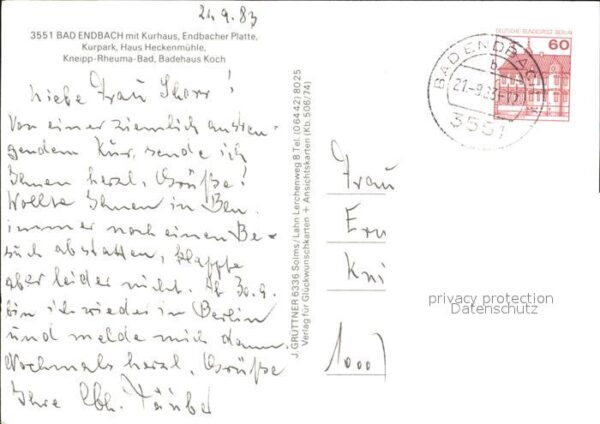 21.9.83
3551 BAD ENDBACH mit Kurhaus, Endbacher Platte,
Kurpark, Haus Heckenmühle,
Kneipp-Rheuma-Bad, Badehaus Koch
Liebe Frau
Von einer ziemlich anstren-
gendem Kur, sende ich
Ihnen herzl. Grüße!
Wollte Ihnen in
immer noch einen Be-
such abstatten, klappte
aber leider nicht. Ab 30.9.
bin ich wieder in Berlin
und melde mich dann.
Nochmals herzl. Grüße
Ihre
J. GRÜTTNER 6336 Solms/Lahn Lerchenweg 8 Tel. (06442) 8025
Verlag für Glückwunschkarten + Ansichtskarten (Kb. 506/74)
DEUTSCHE BUNDESPOST BERLIN
60
BAD ENDBACH
b
21.-9.83-17
3551
Frau
1000
privacy protection
Datenschutz